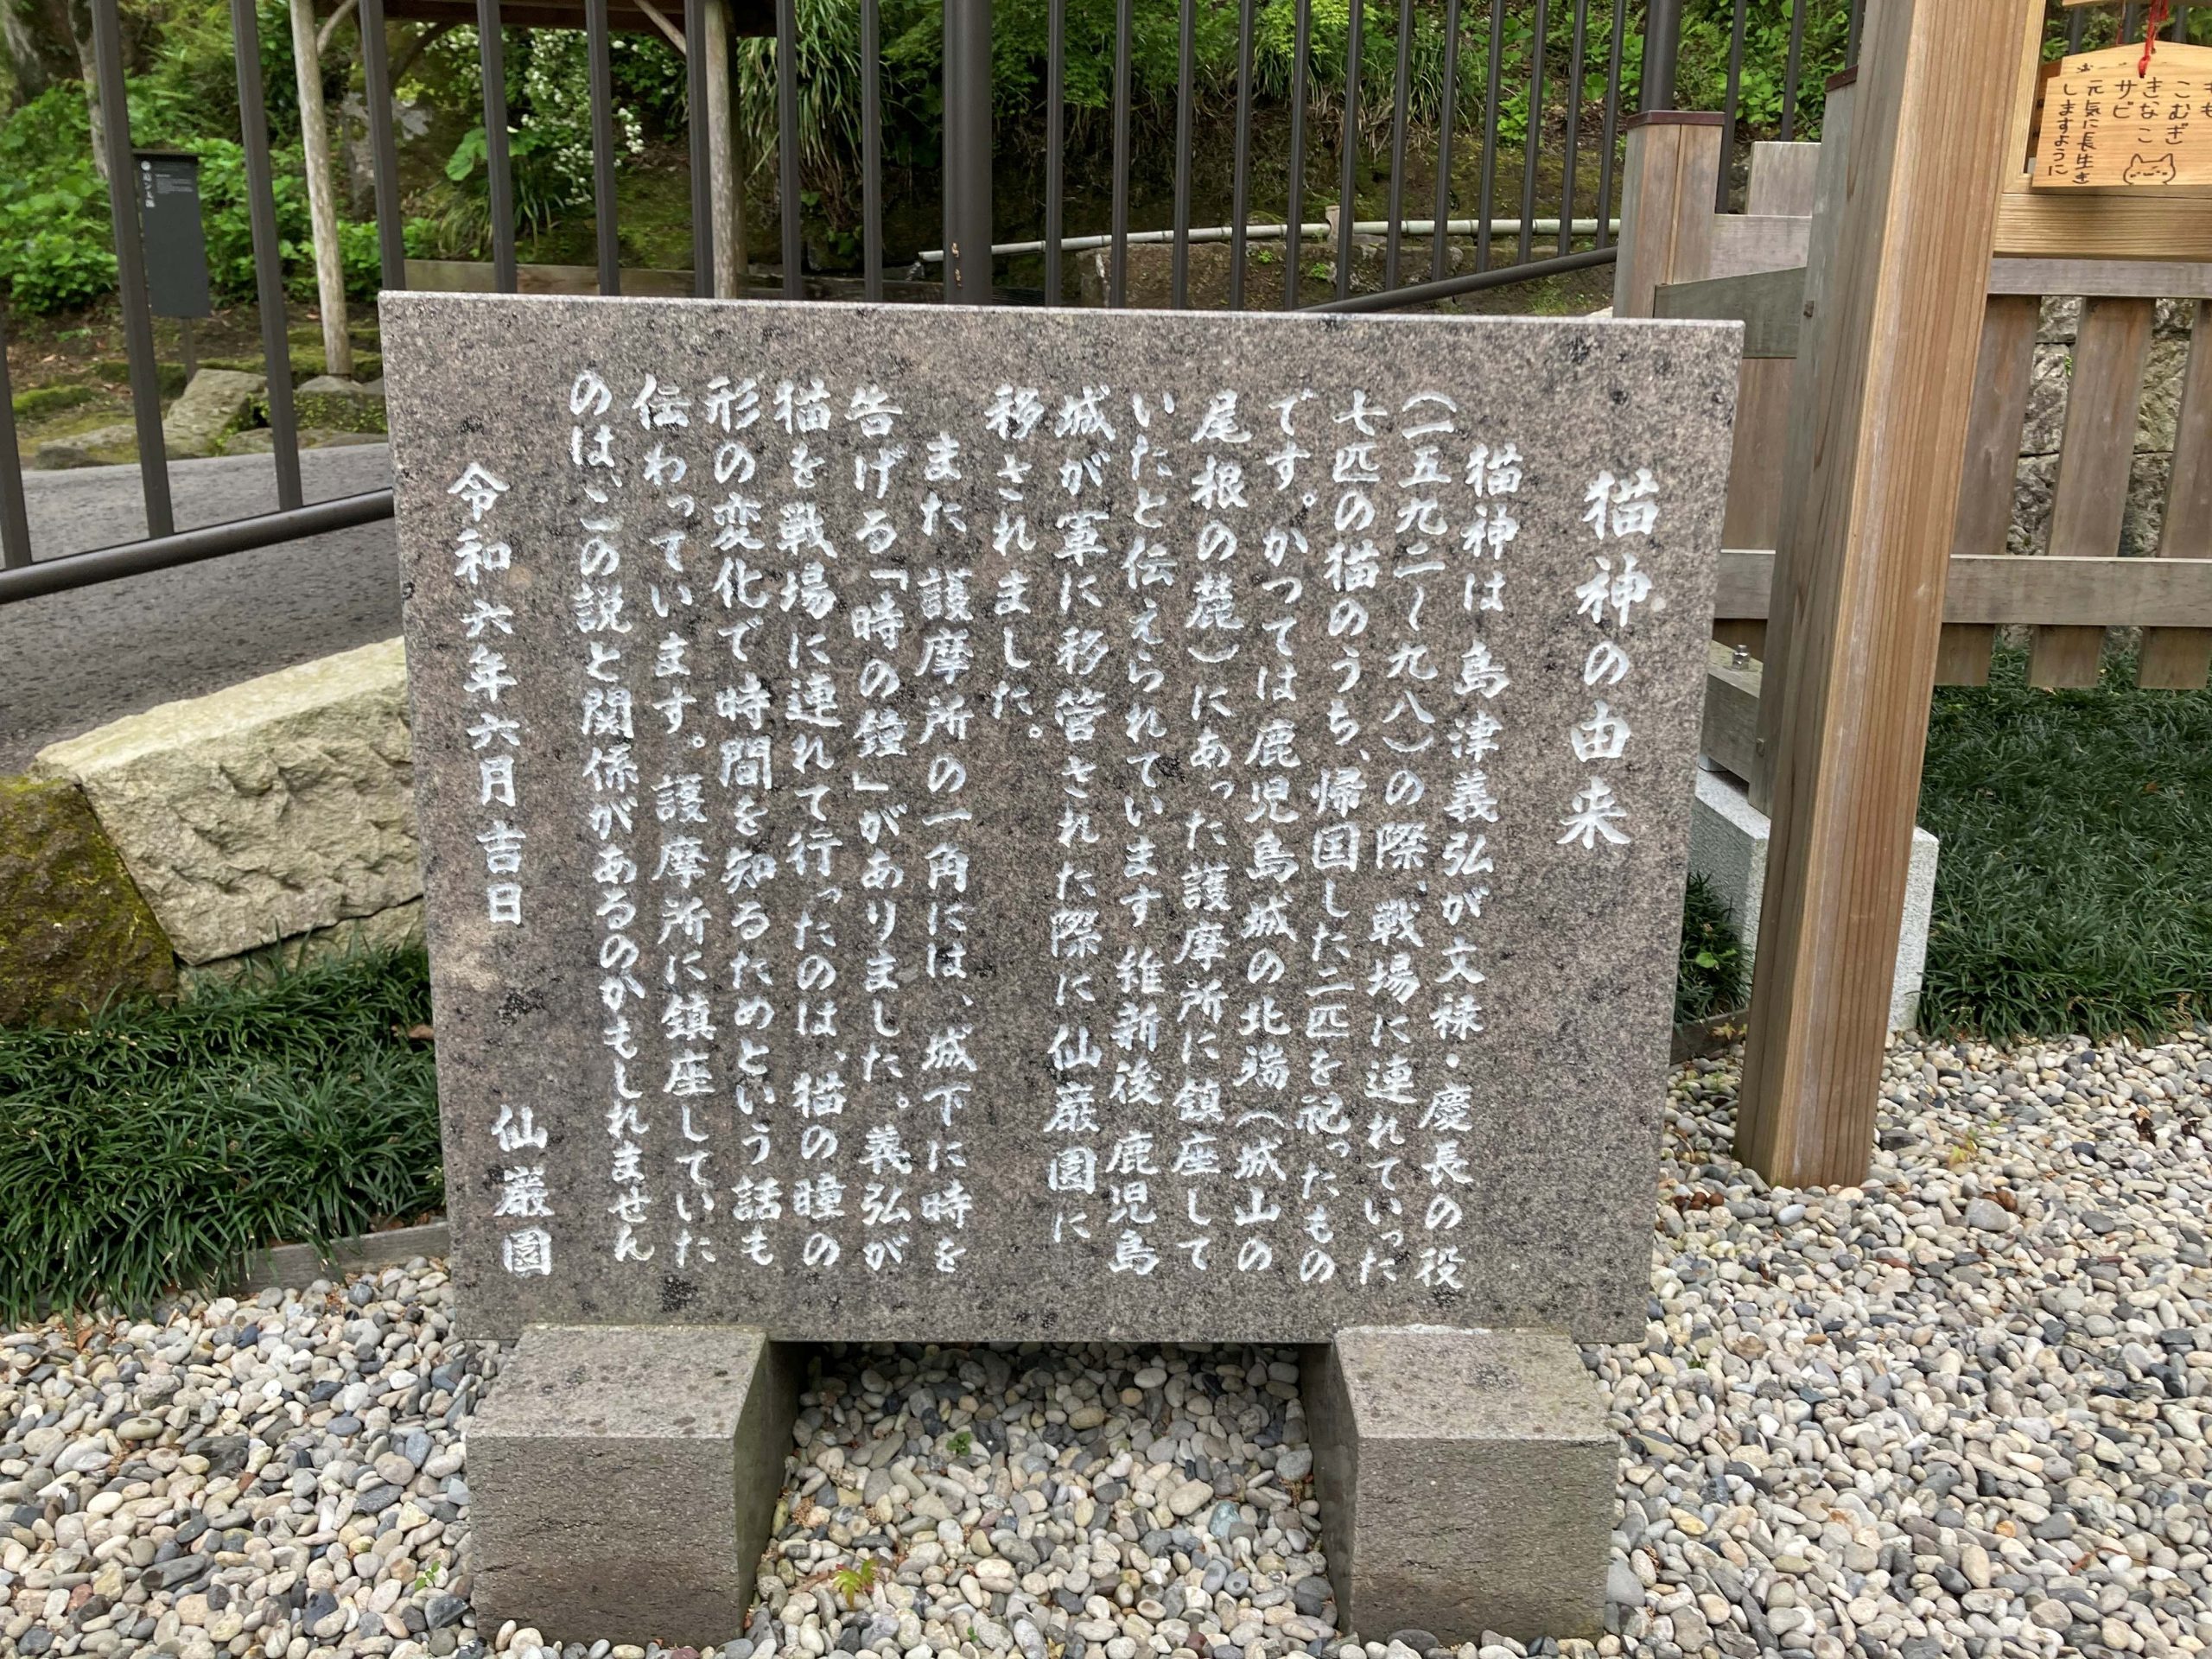 猫神の由来
猫神は島津義弘が文禄・慶長の役
(一五九二〜九八)の際、戦場に連れていった
七匹の猫のうち、帰国した二匹を祀ったもの
です。かつては鹿児島城の北端(城山の
尾根の麓)にあった護摩所に鎮座して
いたと伝えられています 維新後 鹿児島
城が軍に移管された際に仙巌園に
移されました。
また 護摩所の一角には、城下に時を
告げる「時の鐘」がありました。義弘が
猫を戦場に連れて行ったのは、猫の瞳の
形の変化で時間を知るためという話も
伝わっています。護摩所に鎮座していた
のは、この説と関係があるのかもしれません
令和六年六月吉日 仙巌園
こむぎ
きなこ
サビ
元気に長生き
しますように